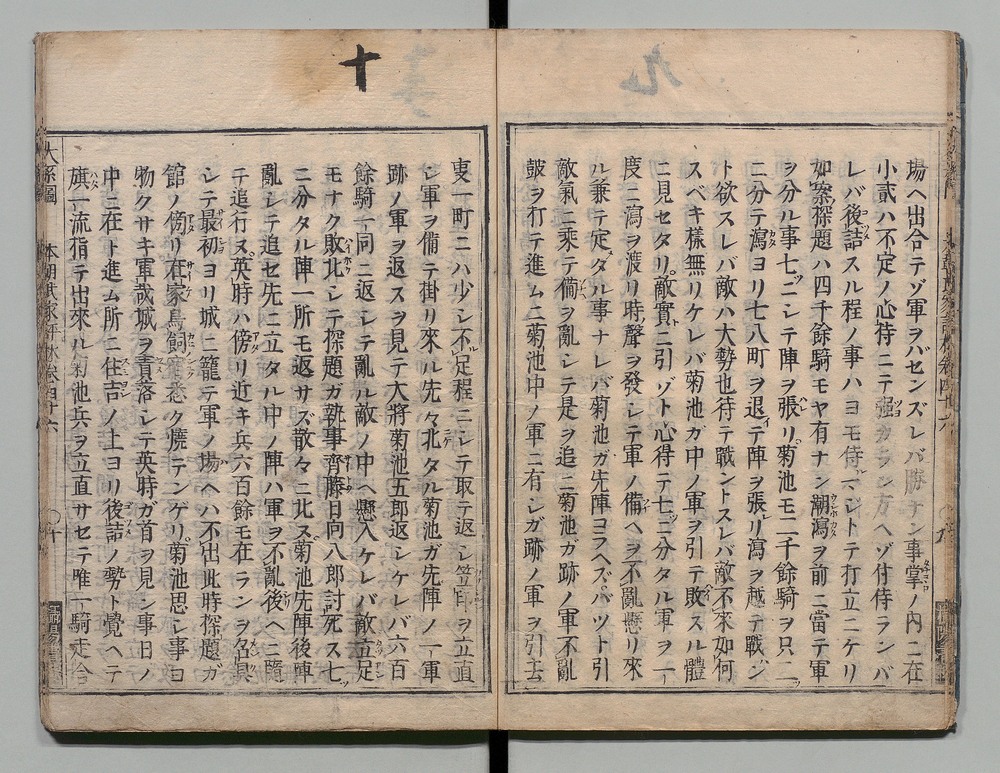 場ヘ出合テゾ軍ヲバセンズレバ勝ナン事掌ノ内ニ在
小貳ハ不定ノ心待ニテ強カラン方ヘゾ付侍ランバ
レバ後詰スル程ノ事ハヨモ侍ラントテ打立ニケリ
如案探題ハ四千餘騎モヤ有ナン潮瀉ヲ前ニ當テ軍
ヲ分ル事七ツニシテ陣ヲ張リ菊池モ二千餘騎ヲ只二ツ
ニ分テ瀉ヨリ七八町ヲ退イテ陣ヲ張リ瀉ヲ越テ戰ハン
ト欲スレバ敵ハ大勢也待テ戰ントスレバ敵不來如何
スベキ樣無リケレバ菊池ガ中ノ軍ヲ引テ敗スル體
ニ見セタリ敵實ニ引ゾト心得テ七ツニ分タル軍ヲ一
度ニ瀉ヲ渡リ時聲ヲ發シテ軍ノ備ヘヲ不亂懸リ來
ル兼テ定メタル事ナレバ菊池ガ先陣コラヘズバツト引
敵氣ニ乘テ備ヲ亂シテ是ヲ追ニ菊池ガ跡ノ軍不亂
鼓ヲ打テ進ムニ菊池中ノ軍ニ有シガ跡ノ軍ヲ引去
十
事一町ニハ少シ不足程ニシテ取テ返シ笠印ヲ立直
シ軍ヲ備テ掛リ來ル先々北タル菊池ガ先陣ノ一軍
跡ノ軍ヲ返スヲ見テ大將菊池五郎返シケレバ六百
餘騎一同ニ返シテ亂ル敵ノ中ヘ懸入ケレバ敵立足
モナク敗北シテ探題ガ執事齊藤日向八郎討死ス七ツ
ニ分タル陣一所モ返サズ散々ニ北ス菊池先陣後陣
亂シテ追セ先ニ立タル中ノ陣ハ軍ヲ不亂後ヘニ隨
テ追行ス英時ハ傍リ近キ兵六百餘モ在ラン名具
シテ最初ヨリ城ニ籠テ軍ノ場ヘハ不出此時探題ガ
館ノ傍リ在家鳥飼
ク燒テンゲリ菊池思シ事ヨ
物クサキ軍哉城ヲ責落シテ英時ガ首ヲ見ン事日ノ
中ニ在ト進ム所ニ住吉ノ上ヨリ後詰ノ勢ト覺ヘテ
旗一流指テ出來ル菊池兵ヲ立直サセテ唯一騎走合
大系圖
本朝武家評林卷四十六
〇十